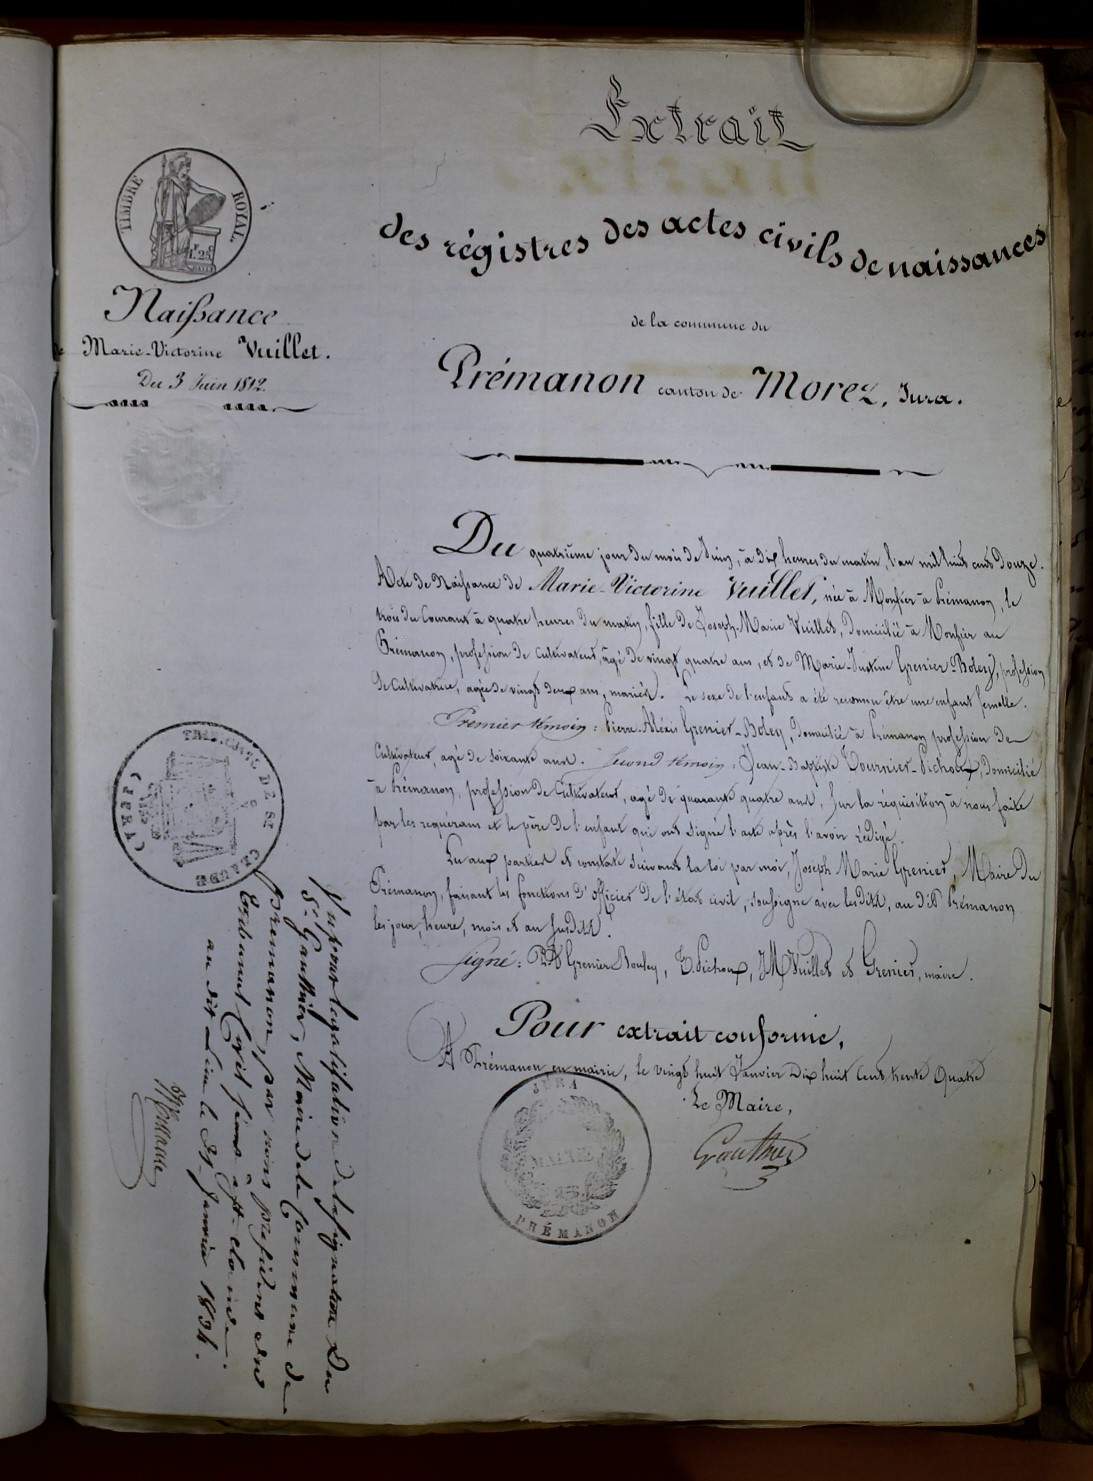 Extrait
des régistres des actes civils de naissances
de la commune du
Prémanon canton de Morez, Jura.
TIMBRE ROYAL
1F.25
Naissance
de Marie-Victorine Vuillet.
Du 3 Juin 1812.
Du quatrième jour du mois de Juin, à dix heures du matin, l'an mil huit cent Douze.
Acte de Naissance de Marie-Victorine Vuillet, née à Monfier à Prémanon, le
trois du Courant à quatre heures du matin, fille de Joseph-Marie Vuillet, Domicilié à Monfier au
Prémanon, profession de Cultivateur, âgé de vingt quatre ans, et de Marie-Justine Grenier-Boley, profession
de Cultivatrice, agée de vingt deux ans, mariés. Le sexe de l'enfant a été reconnu être une enfant femelle.
Premier témoin: Pierre-Alexis Grenier-Boley, Domicilié à Prémanon profession de
Cultivateur, agé de soixante ans. Second témoin, Jean-Baptiste Tournier-Pichoux, Domicilié
à Prémanon, profession de Cultivateur, agé de quarante quatre ans, Sur la réquisition à nous faite
par les requerans et le père de l'enfant qui ont signé l'acte après l'avoir rédigé.
Lu aux parties et constaté suivant la loi par moi, Joseph Marie Grenier, Maire du
Prémanon, faisant les fonctions d'officier de l'état civil, soussigné avec lesdits, au dit Prémanon
les jour, heure, mois et an susdits.
Signé: P.A Grenier Bouley, T. Pichoux, J M Vuillet et Grenier, maire.
Pour extrait conforme,
A Prémanon en mairie, le vingt huit Janvier Dix huit Cent trente Quatre
Le Maire,
Gauthier
JURA
MAIRIE
PRÉMANON
TRIB. CIVIL DE ST CLAUDE
(JURA)
Vu pour légalisation de la signature du
Sr. Gauthier, Maire de la Commune de
Prémanon, par nous président du
tribunal Civil séant à St. Claude.
au dit Lieu le 29 Janvier 1834.